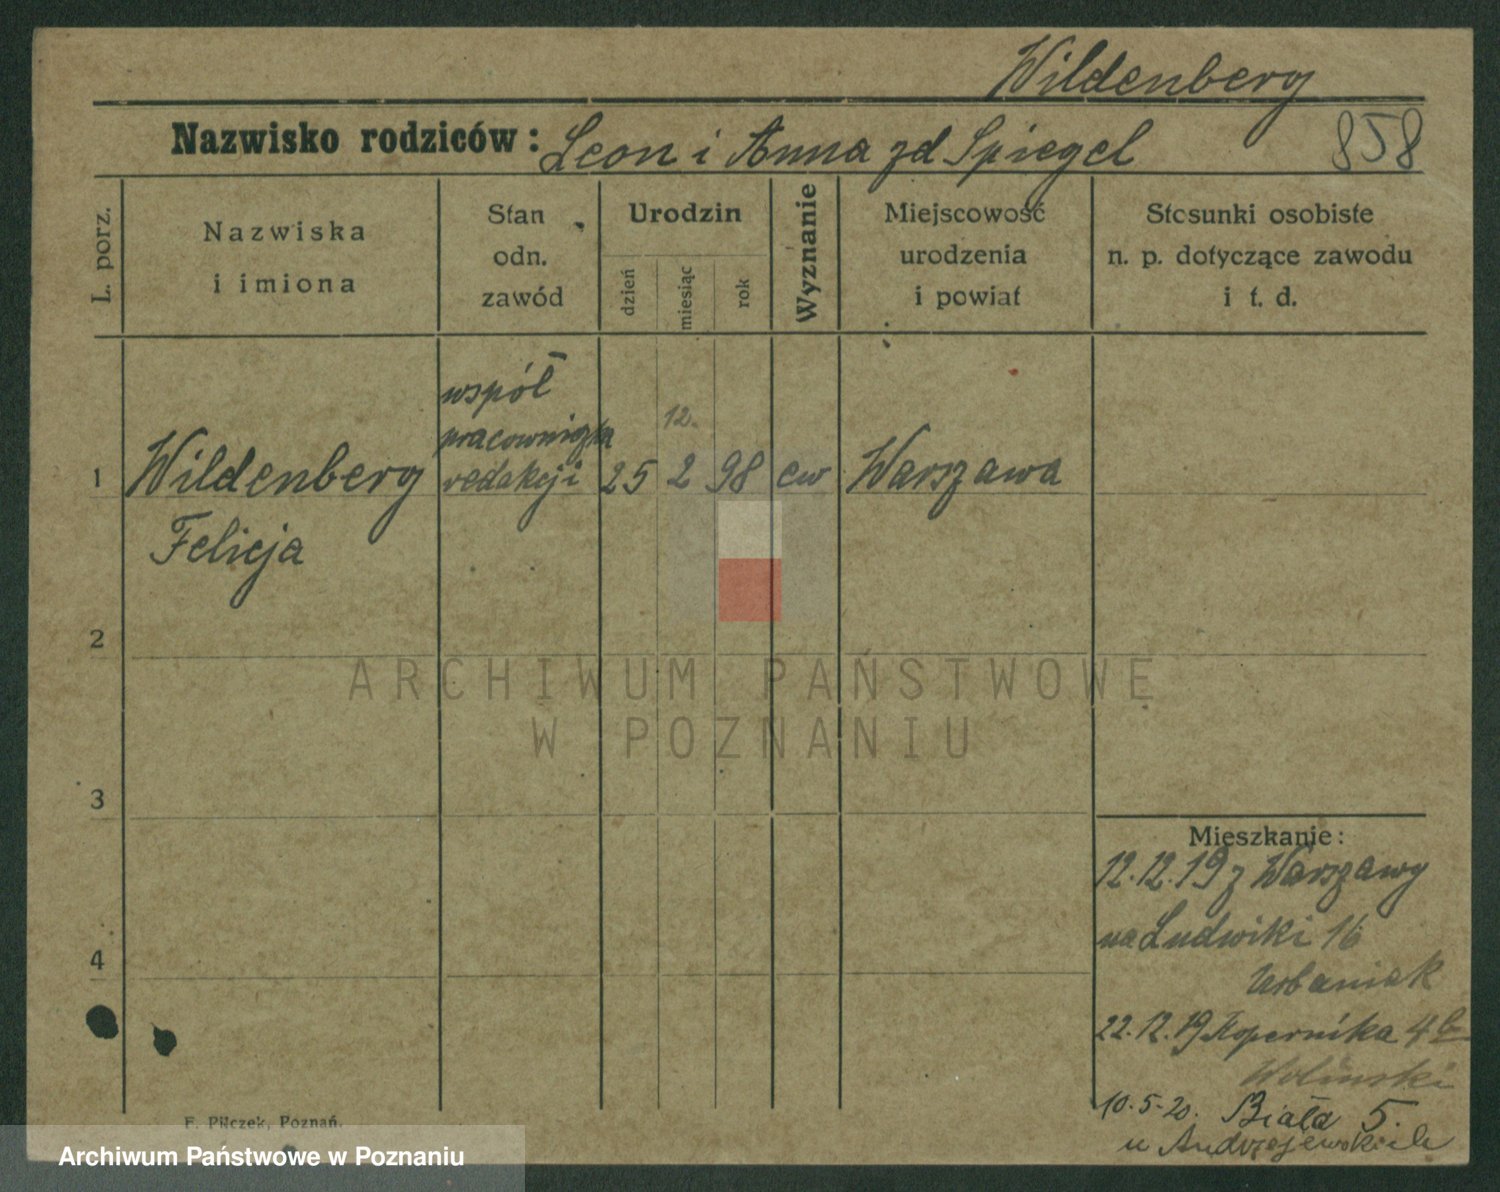 Wildenberg
Nazwisko rodziców: Leon i Anna zd Spiegel 858
L. porz.
Nazwiska
i imiona
Stan
odn.
zawód
Urodzin
dzień
miesiąc
rok
Wyznanie
Miejscowość
urodzenia
i powiat
Stosunki osobiste
n. p. dotyczące zawodu
i t. d.
współ
pracowniczka
redakcji
12.
1 Wildenberg 25 2 98 ew Warszawa
Felicja
2
3
4
ARCHIWUM PAŃSTWOWE
W POZNANIU
Mieszkanie:
12.12.19 z Warszawy
na Ludwiki 16
Urbaniak
22.12.19 Kopernika 4b
Woliński
10.5.20. Biała 5.
u Andrzejewskich
F. Pilczek, Poznań.
Archiwum Państwowe w Poznaniu